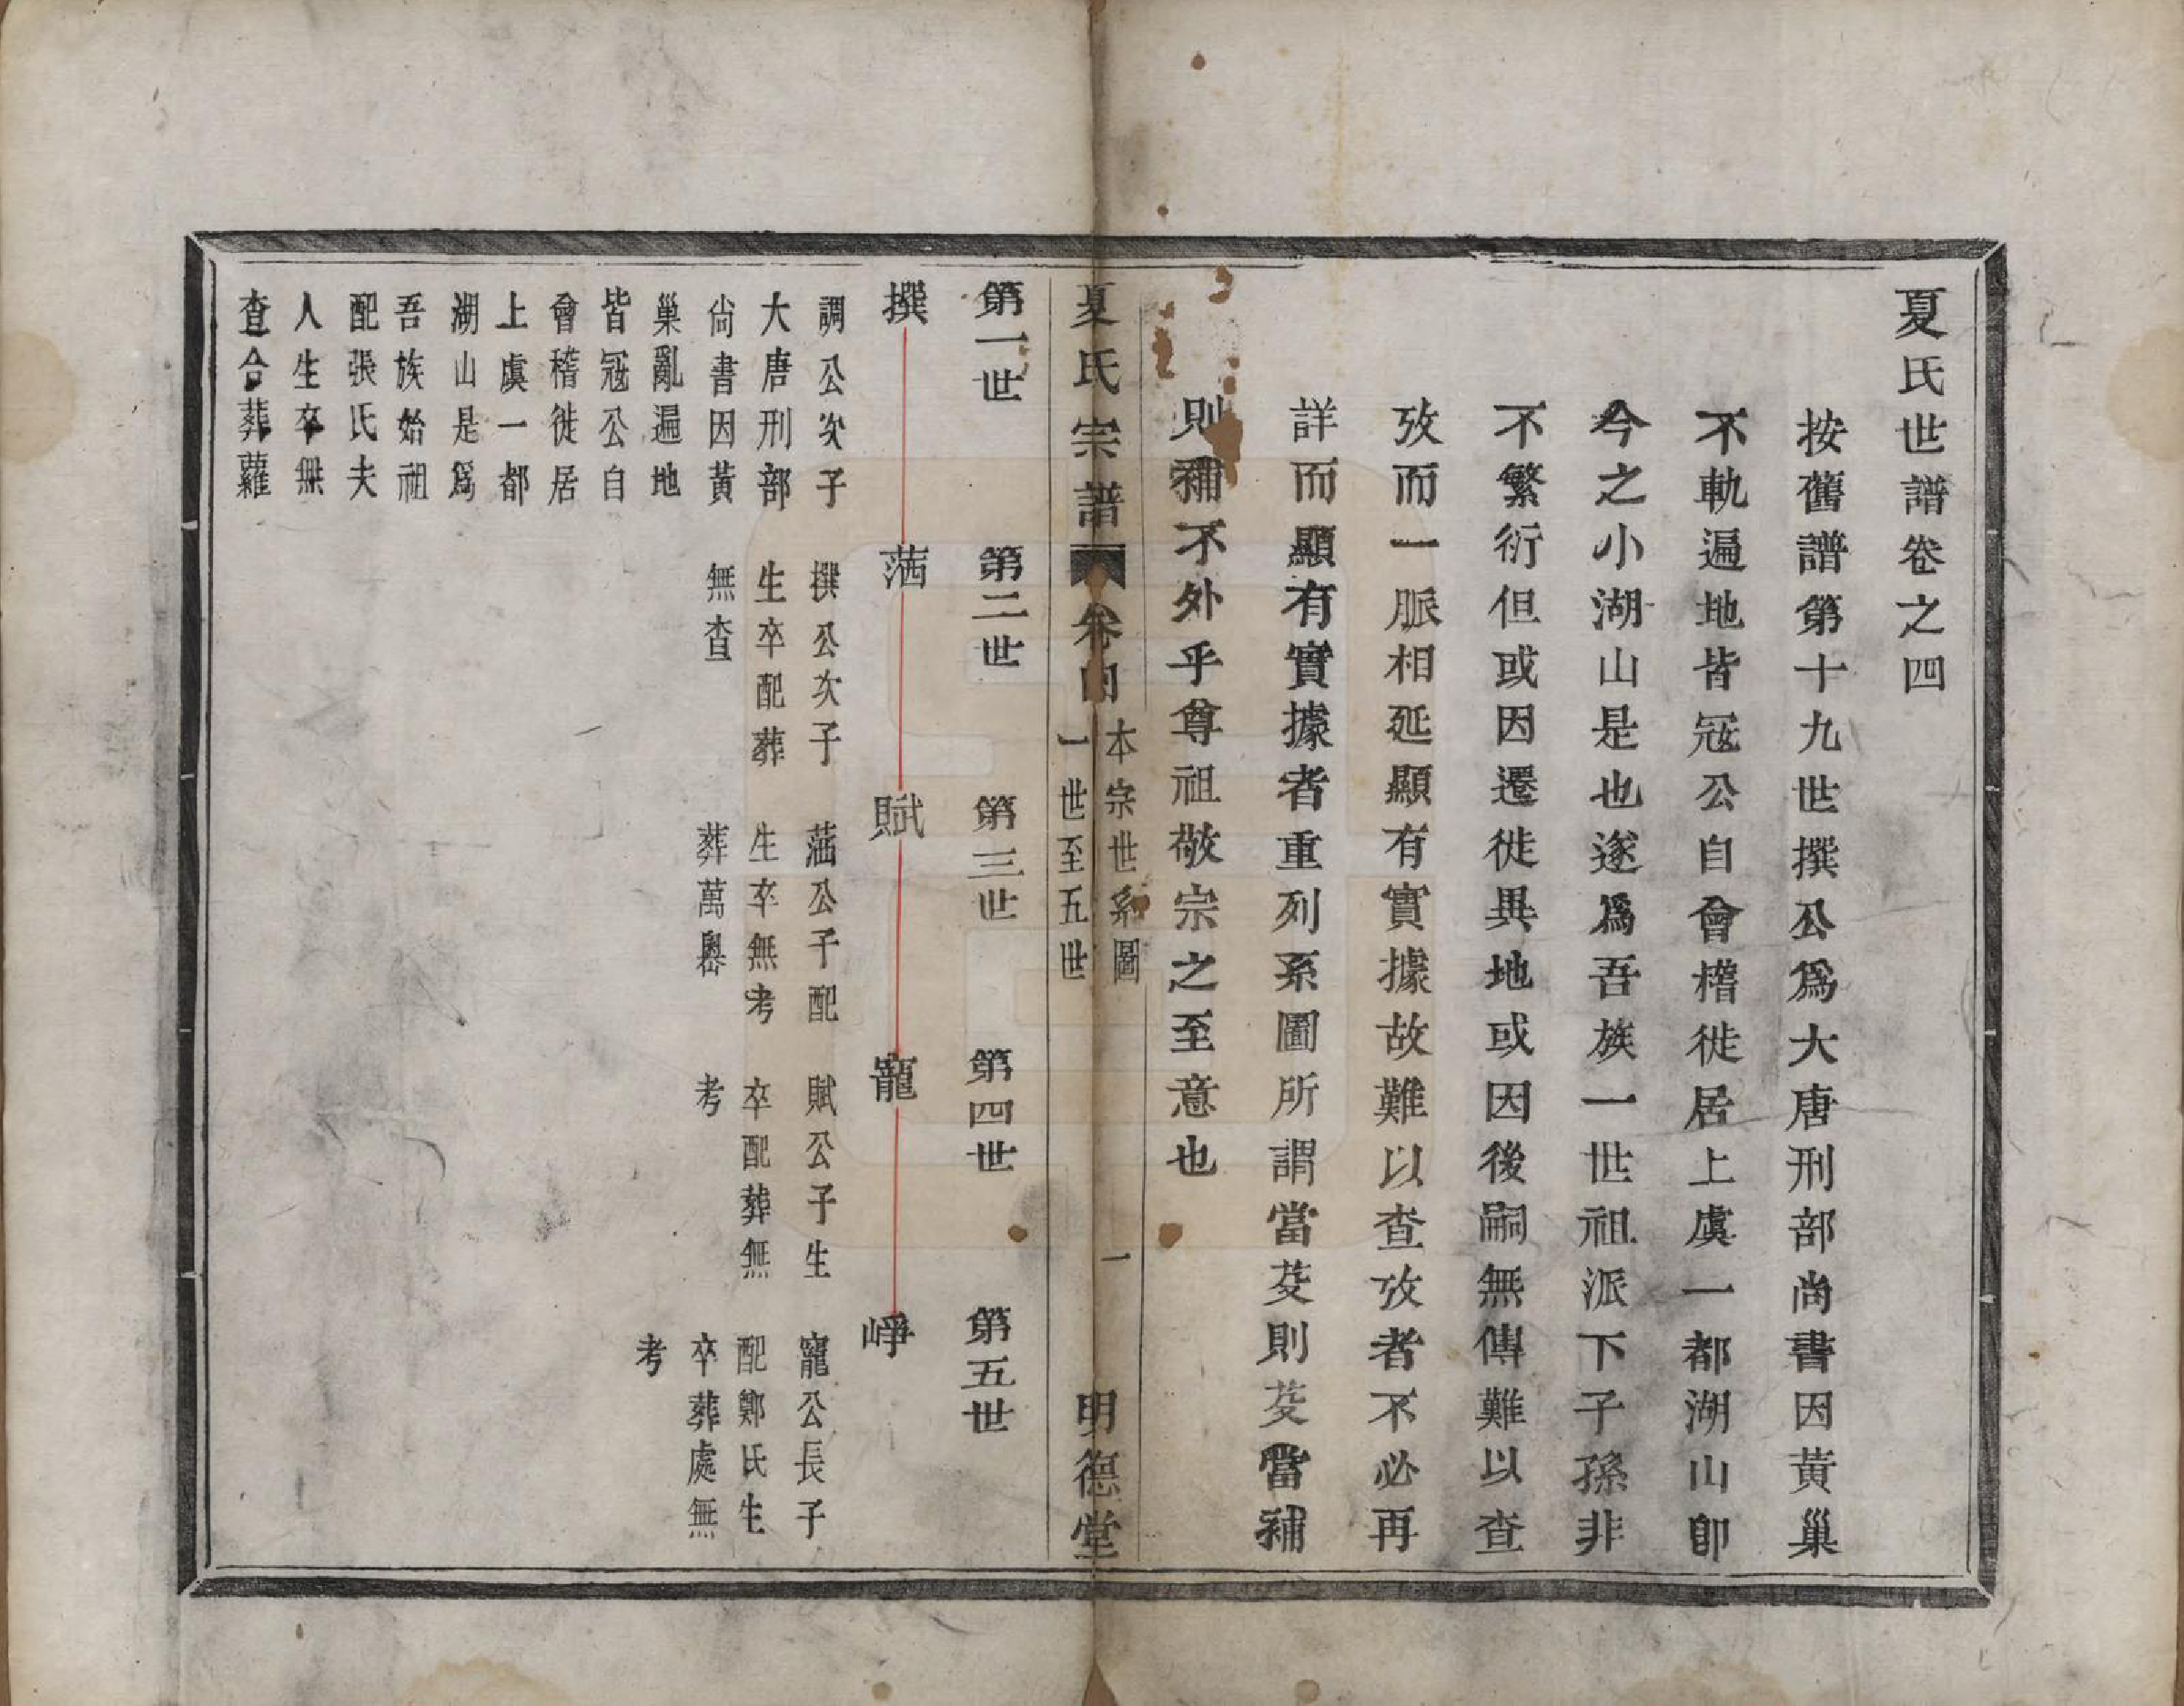 夏氏世譜卷之四
按舊譜第十九世撰公爲大唐刑部尚書因黃巢
不軌遍地皆冦公自會稽徙居上虞一都湖山即
今之小湖山是也遂爲吾族一世祖派下子孫非
不繁衍但或因遷徙異地或因後嗣無傳難以查
攷而一脈相延顯有實據故難以查攷者不必再
詳而顯有實據者重列系圖所謂當芟則芟當補
則補不外乎尊祖敬宗之至意也
夏氏宗譜 卷四 本宗世系圖 一世至五世 一 明德堂
第一世
第二世
第三世
第四世
第五世
撰
賦
寵
崢
調公次子
大唐刑部
尙書因黃
巢亂遍地
皆冦公自
會稽徙居
上虞一都
湖山是爲
吾族始祖
配張氏夫
人生卒無
查合葬蘿
撰公次子
生卒配葬
無查
公子配
生卒無考
葬萬嶴
賦公子生
卒配葬無
考
寵公長子
配鄭氏生
卒葬處無
考